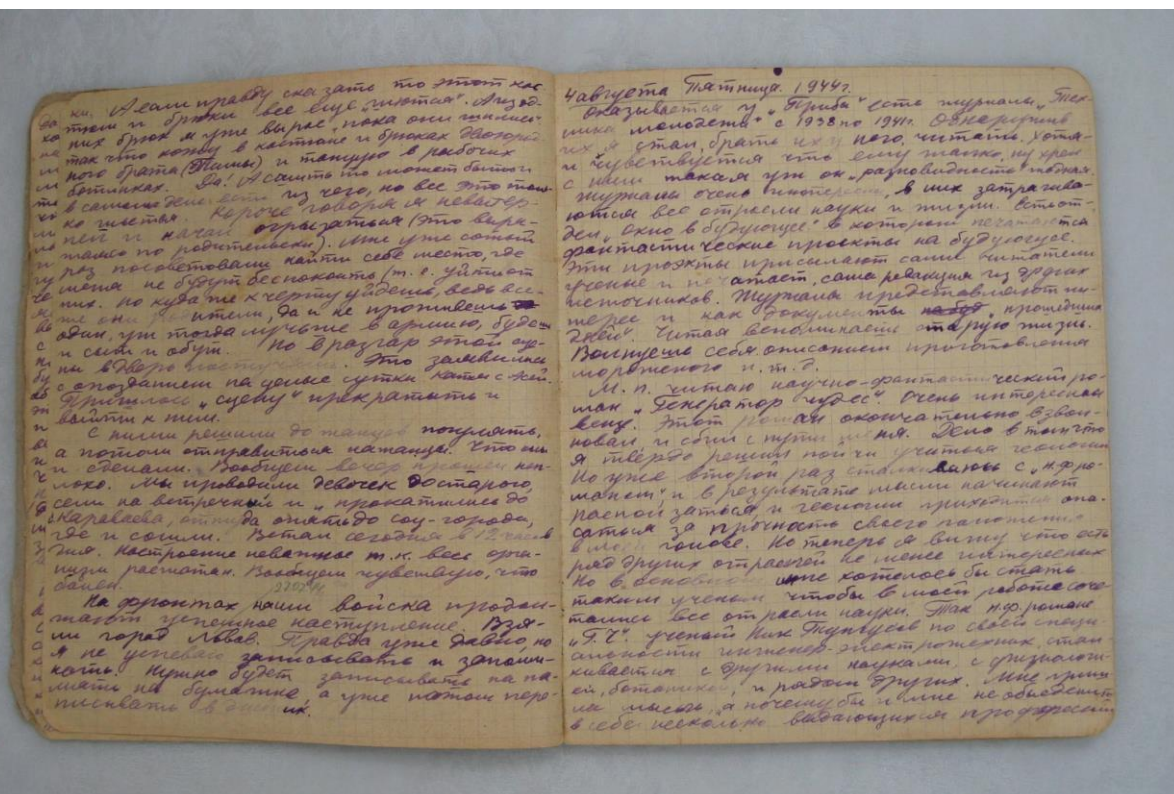 А если правду сказать то этот кос
тюм и брюки все еще „шьются“. А из од-
них брюк я уже вырос, пока они шились
так что хожу в костюме и брюках двоюрод
ного брата (Тимы) и танцую в рабочих
ботинках. Да! А сшить то может быть и
в самом деле есть из чего, но все это толь-
ко шьется. Короче говоря я невытер-
пел и начал огрызаться (это выра-
жаясь по родительски). Мне уже сотый
раз посоветовали найти себе место, где
меня не будут беспокоить (т. е. уйти от
них. Но куда же к черту уйдешь, ведь все-
же они родители, да и не проживешь
один, уж тогда лучьше в армию, будешь
и сыт и обут. Но в разгар этой сце-
ны в дверь постучали. Это заявились
с опозданием на целые сутки
Пришлось „сцену“ прекратить и
выйти к ним.
С ними решили до танцев погулять,
а потом отправиться на танцы. Что мы
и сделали. Вообщем вечер прошел неп-
лохо. Мы проводили девочек до старого,
сели на встречный и „прокатились до
Караваева, откуда опять до соц-города,
где и сошли. Встал сегодня в 12 часов
дня. Настроение неважное т.к. весь орга-
низм расшатан. Вообщем чувствую, что
болен.
На фронтах наши войска продол-
жают успешное наступление. Взя-
ли город Львов. Правда уже давно, но
я не успеваю записывать и запоми-
нать. Нужно будет записывать на па-
мять на бумажке, а уже потом пере-
писывать в дневник.
4 августа Пятница. 1944г.
Оказывается у „Гриба“ есть журналы „Тех-
ника молодежи“ с 1938 по 1941г. Обнаружив
их я стал брать их у него читать. Хотя-
и чувствуется что ему жалко, ну хрен
с ним такая уж он „разновидность“
Журналы очень интересны, в них затрагива-
ются все отрасли науки и жизни. Есть от-
дел „окно в будующее“ в котором печатаются
фантастические проекты на будующее.
Эти проэкты присылают сами читатели
ученые и печатает сама редакция из других
источников. Журналы представляют ин-
терес и как документы „прошедших
дней“. Читая вспоминаете старую жизнь.
Волнуешь себя описанием приготовления
мороженого и. т. д.
М. п. читаю научно-фантастический ро-
ман „Генератор чудес“. Очень интересная
вещь. Этот роман окончательно взвол-
новал и сбил с пути меня. Дело в том что
я твердо решил пойти учиться геологии
Но уже второй раз сталкиваюсь с „н.ф ро-
маном“ и в результате мысли начинают
расползаться и геологии приходится опа-
саться за прочность своего положения
в моей голове. Но теперь я вижу что есть
ряд других отраслей не менее интересных
Но в основном мне хотелось бы стать
таким ученым чтобы в моей работе соче-
тались все отрасли науки. Так н.ф. романе
„Г.Ч.“ ученый Ник Тунгусов по своей специ-
альности инженер-электрожених, стал-
кивается с другими науками, с физиологи-
ей, ботаникой, и рядом других. Мне приш
ла мысль, а почему бы и мне не объединить
в себе несколько выдающихся профессий